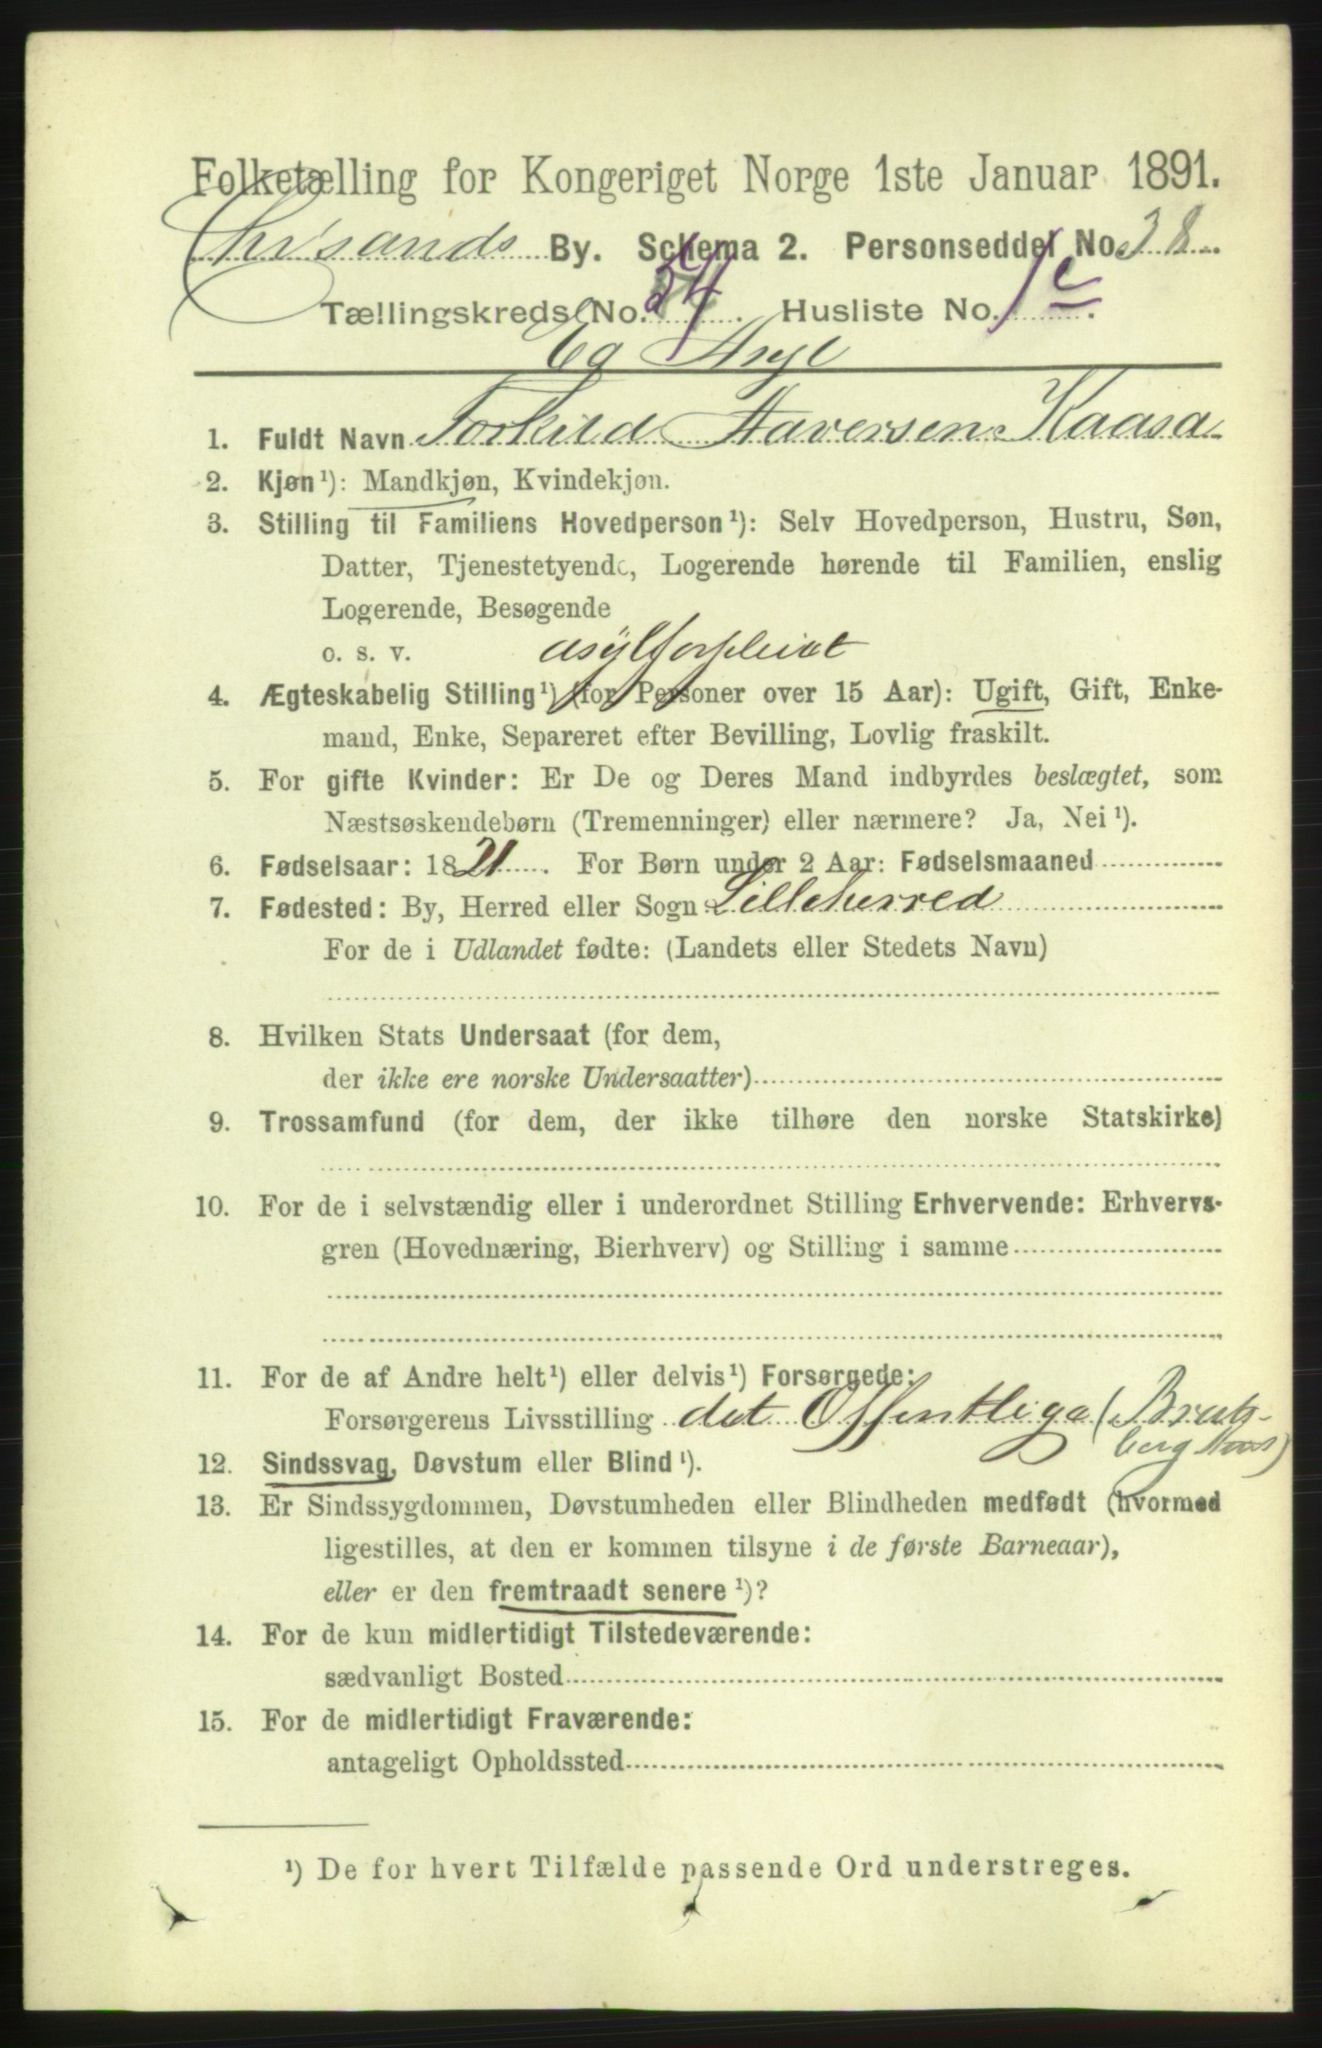 Folketælling for Kongeriget Norge 1ste Januar 1891.
Chr'sands By. Schema 2. Personseddel No. 38.
Tællingskreds No. 54. Husliste No. 1c.
Eg Asyl
1. Fuldt Navn Torkild Haaversen Kaasa
2. Kjøn ¹): Mandkjøn, Kvindekjøn.
3. Stilling til Familiens Hovedperson ¹): Selv Hovedperson, Hustru, Søn,
Datter, Tjenestetyende, Logerende hørende til Familien, enslig
Logerende, Besøgende
o. s. v. asylforpleiet
4. Ægteskabelig Stilling ¹) (for Personer over 15 Aar): Ugift, Gift, Enke-
mand, Enke, Separeret efter Bevilling, Lovlig fraskilt.
5. For gifte Kvinder: Er De og Deres Mand indbyrdes beslægtet, som
Næstsøskendebørn (Tremenninger) eller nærmere? Ja, Nei ¹).
6. Fødselsaar: 1821. For Børn under 2 Aar: Fødselsmaaned
7. Fødested: By, Herred eller Sogn Lilleherred
For de i Udlandet fødte: (Landets eller Stedets Navn)
8. Hvilken Stats Undersaat (for dem,
der ikke ere norske Undersaatter)
9. Trossamfund (for dem, der ikke tilhøre den norske Statskirke)
10. For de i selvstændig eller i underordnet Stilling Erhvervende: Erhvervs-
gren (Hovednæring, Bierhverv) og Stilling i samme
11. For de af Andre helt ¹) eller delvis ¹) Forsørgede:
Forsørgerens Livsstilling det Offentlige (Brats-
berg Amt)
12. Sindssvag, Døvstum eller Blind ¹).
13. Er Sindssygdommen, Døvstumheden eller Blindheden medfødt (hvormed
ligestilles, at den er kommen tilsyne i de første Barneaar),
eller er den fremtraadt senere ¹)?
14. For de kun midlertidigt Tilstedeværende:
sædvanligt Bosted
15. For de midlertidigt Fraværende:
antageligt Opholdssted
¹) De for hvert Tilfælde passende Ord understreges.